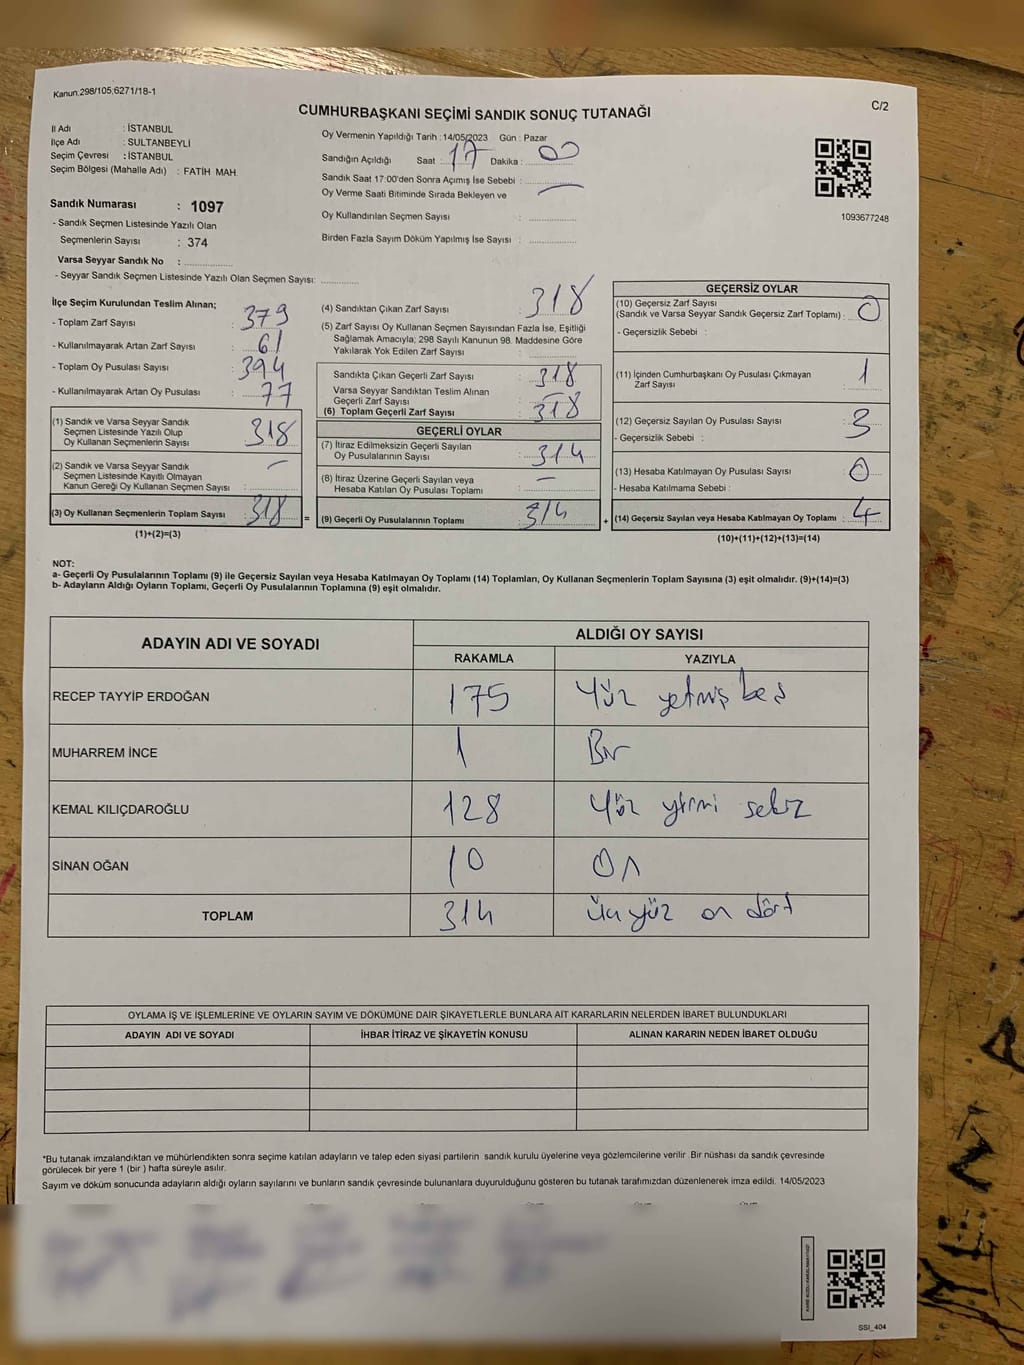 Kanun.298/105,6271/18-1
C/2
CUMHURBAŞKANI SEÇİMİ SANDIK SONUÇ TUTANAĞI
İl Adı : İSTANBUL
İlçe Adı : SULTANBEYLİ
Seçim Çevresi : İSTANBUL
Seçim Bölgesi (Mahalle Adı) : FATİH MAH.
Sandık Numarası : 1097
- Sandık Seçmen Listesinde Yazılı Olan
Seçmenlerin Sayısı : 374
Varsa Seyyar Sandık No :
- Seyyar Sandık Seçmen Listesinde Yazılı Olan Seçmen Sayısı:
Oy Vermenin Yapıldığı Tarih : 14/05/2023 Gün : Pazar
Sandığın Açıldığı Saat : 17 Dakika : 00
Sandık Saat 17:00'den Sonra Açımış İse Sebebi :
Oy Verme Saati Bitiminde Sırada Bekleyen ve
Oy Kullandırılan Seçmen Sayısı :
Birden Fazla Sayım Döküm Yapılmış İse Sayısı :
1093677248
İlçe Seçim Kurulundan Teslim Alınan;
- Toplam Zarf Sayısı : 379
- Kullanılmayarak Artan Zarf Sayısı : 61
- Toplam Oy Pusulası Sayısı : 394
- Kullanılmayarak Artan Oy Pusulası : 77
(1) Sandık ve Varsa Seyyar Sandık
Seçmen Listesinde Yazılı Olup
Oy Kullanan Seçmenlerin Sayısı : 318
(2) Sandık ve Varsa Seyyar Sandık
Seçmen Listesinde Kayıtlı Olmayan
Kanun Gereği Oy Kullanan Seçmen Sayısı : —
(3) Oy Kullanan Seçmenlerin Toplam Sayısı : 318
(1)+(2)=(3)
=
(4) Sandıktan Çıkan Zarf Sayısı : 318
(5) Zarf Sayısı Oy Kullanan Seçmen Sayısından Fazla İse, Eşitliği
Sağlamak Amacıyla; 298 Sayılı Kanunun 98. Maddesine Göre
Yakılarak Yok Edilen Zarf Sayısı :
Sandıkta Çıkan Geçerli Zarf Sayısı : 318
Varsa Seyyar Sandıktan Teslim Alınan
Geçerli Zarf Sayısı : —
(6) Toplam Geçerli Zarf Sayısı : 318
GEÇERLİ OYLAR
(7) İtiraz Edilmeksizin Geçerli Sayılan
Oy Pusulalarının Sayısı : 314
(8) İtiraz Üzerine Geçerli Sayılan veya
Hesaba Katılan Oy Pusulası Toplamı : —
(9) Geçerli Oy Pusulalarının Toplamı : 314
+
GEÇERSİZ OYLAR
(10) Geçersiz Zarf Sayısı
(Sandık ve Varsa Seyyar Sandık Geçersiz Zarf Toplamı) : 0
- Geçersizlik Sebebi :
(11) İçinden Cumhurbaşkanı Oy Pusulası Çıkmayan
Zarf Sayısı : 1
(12) Geçersiz Sayılan Oy Pusulası Sayısı : 3
- Geçersizlik Sebebi :
(13) Hesaba Katılmayan Oy Pusulası Sayısı : 0
- Hesaba Katılmama Sebebi :
(14) Geçersiz Sayılan veya Hesaba Katılmayan Oy Toplamı : 4
(10)+(11)+(12)+(13)=(14)
NOT:
a- Geçerli Oy Pusulalarının Toplamı (9) ile Geçersiz Sayılan veya Hesaba Katılmayan Oy Toplamı (14) Toplamları, Oy Kullanan Seçmenlerin Toplam Sayısına (3) eşit olmalıdır. (9)+(14)=(3)
b- Adayların Aldığı Oyların Toplamı, Geçerli Oy Pusulalarının Toplamına (9) eşit olmalıdır.
ADAYIN ADI VE SOYADI
ALDIĞI OY SAYISI
RAKAMLA YAZIYLA
RECEP TAYYİP ERDOĞAN 175 Yüz yetmiş beş
MUHARREM İNCE 1 Bir
KEMAL KILIÇDAROĞLU 128 Yüz yirmi sekiz
SİNAN OĞAN 10 On
TOPLAM 314 üçyüz on dört
OYLAMA İŞ VE İŞLEMLERİNE VE OYLARIN SAYIM VE DÖKÜMÜNE DAİR ŞİKAYETLERLE BUNLARA AİT KARARLARIN NELERDEN İBARET BULUNDUKLARI
ADAYIN ADI VE SOYADI İHBAR İTİRAZ VE ŞİKAYETİN KONUSU ALINAN KARARIN NEDEN İBARET OLDUĞU
*Bu tutanak imzalandıktan ve mühürlendikten sonra seçime katılan adayların ve talep eden siyasi partilerin sandık kurulu üyelerine veya gözlemcilerine verilir .Bir nüshası da sandık çevresinde
görülecek bir yere 1 (bir ) hafta süreyle asılır.
Sayım ve döküm sonucunda adayların aldığı oyların sayılarını ve bunların sandık çevresinde bulunanlara duyurulduğunu gösteren bu tutanak tarafımızdan düzenlenerek imza edildi. 14/05/2023
SSI_404